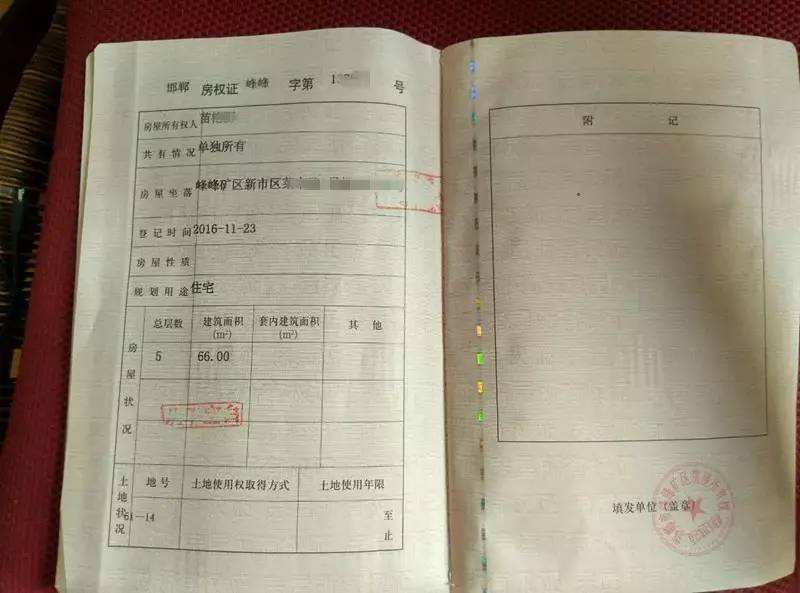 邯郸 房权证 峰峰 字第 号
房屋所有权人 苗
共有情况 单独所有
房屋坐落 峰峰矿区新市区
登记时间 2016-11-23
房屋性质
规划用途 住宅
房屋状况
总层数 建筑面积(m²) 套内建筑面积(m²) 其他
5 66.00
土地状况
地号 土地使用权取得方式 土地使用年限
-14 至
止
附记
填发单位(盖章)